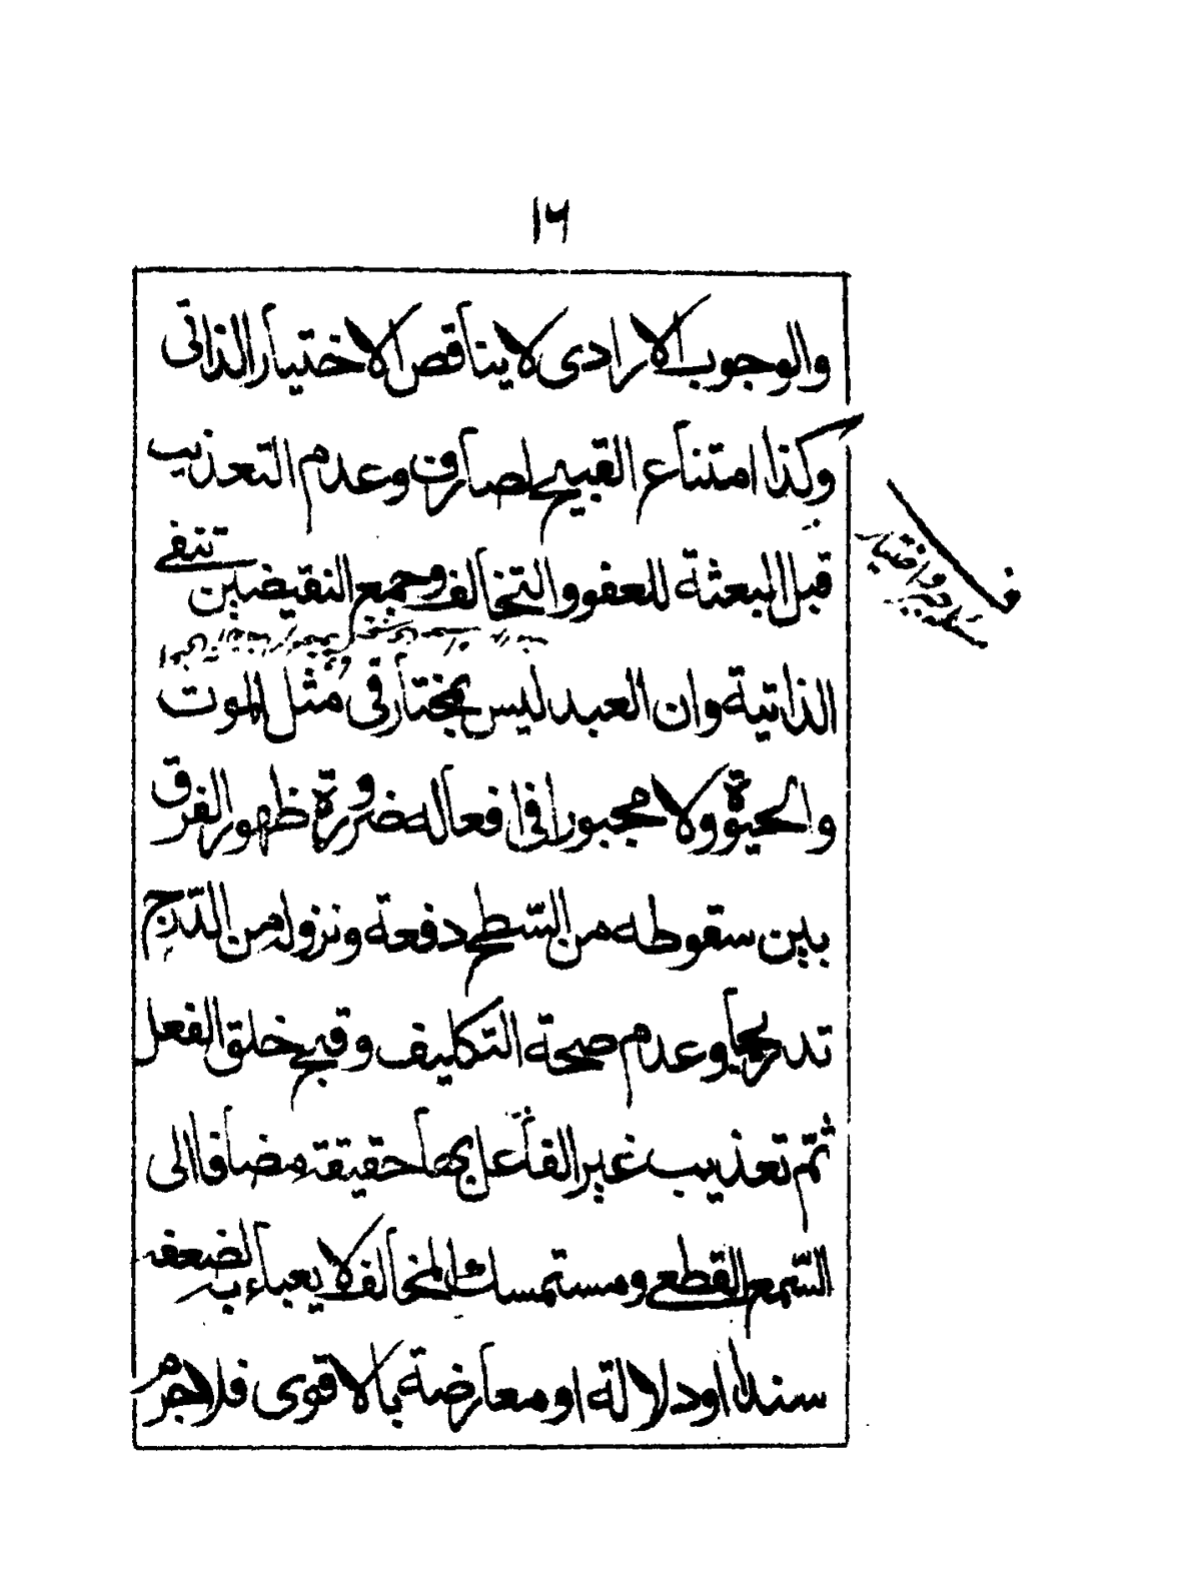 ١٦
والوجوب الارادى لا يناقض الاختيار الذاتى
وكذا امتناع القبيح لصارف وعدم التعذيب
قبل البعثة للعفو والتخالف وجمع النقيضين تنفى
الذاتية وان العبد ليس بمختار فى مثل الموت
والحيوة ولا مجبورا فى افعاله ضرورة ظهور الفرق
بين سقوطه من السّطح دفعة ونزوله من الدّرج
تدريجا وعدم صحة التكليف وقبح خلق الفعل
ثمّ تعذيب غير الفاعل بها حقيقة مضافا الى
السّمع القطعى ومستمسك المخالف لا يعباء به لضعفه
سندا او دلالة او معارضة بالاقوى فلا جرم
ف
مسئله جبر و اختيار